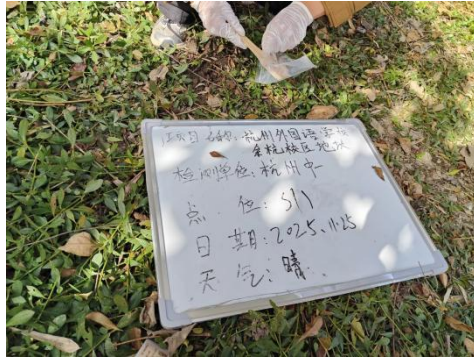 项目名称:杭州外国语学校
余杭校区地块
检测单位:杭州中一
点 位:S11
日 期:2025.11.25
天 气:晴